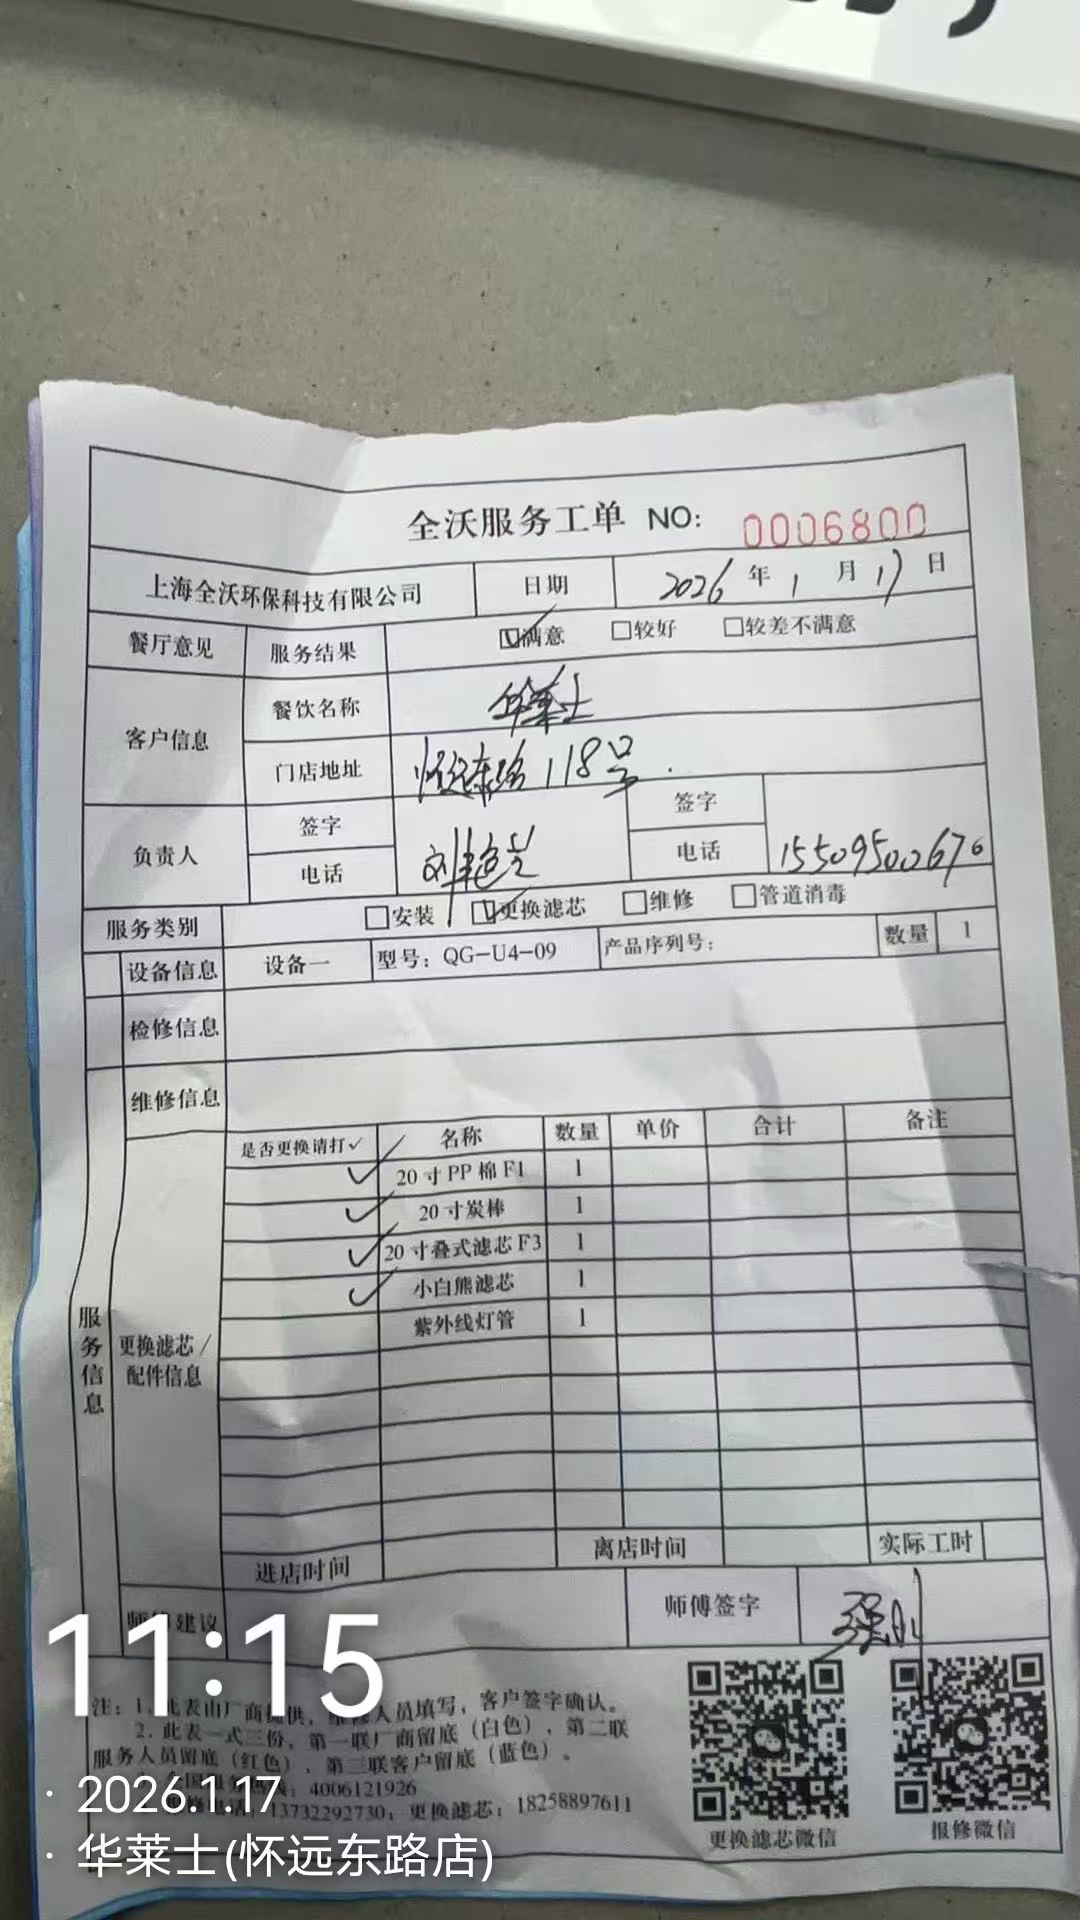 全沃服务工单 NO: 0006800
上海全沃环保科技有限公司 日期 2026年1月17日
餐厅意见 服务结果 ☑满意 □较好 □较差不满意
客户信息 餐饮名称 华莱士
门店地址 怀远东路118号
负责人 签字 签字
电话 刘 电话 15509500676
服务类别 □安装 ☑更换滤芯 □维修 □管道消毒
设备信息 设备一 型号: QG-U4-09 产品序列号: 数量 1
检修信息
维修信息
是否更换请打✓ 名称 数量 单价 合计 备注
✓ 20寸PP棉F1 1
✓ 20寸炭棒 1
✓ 20寸叠式滤芯F3 1
✓ 小白熊滤芯 1
紫外线灯管 1
服务信息
更换滤芯/
配件信息
进店时间 离店时间 实际工时
师傅建议 师傅签字 强刚
11:15
注: 1. 此表由厂商提供, 维修人员填写, 客户签字确认。
2. 此表一式三份, 第一联厂商留底(白色), 第二联
服务人员留底(红色), 第三联客户留底(蓝色)。
4006121926
13732292730; 更换滤芯: 18258897611
更换滤芯微信 报修微信
2026.1.17
华莱士(怀远东路店)